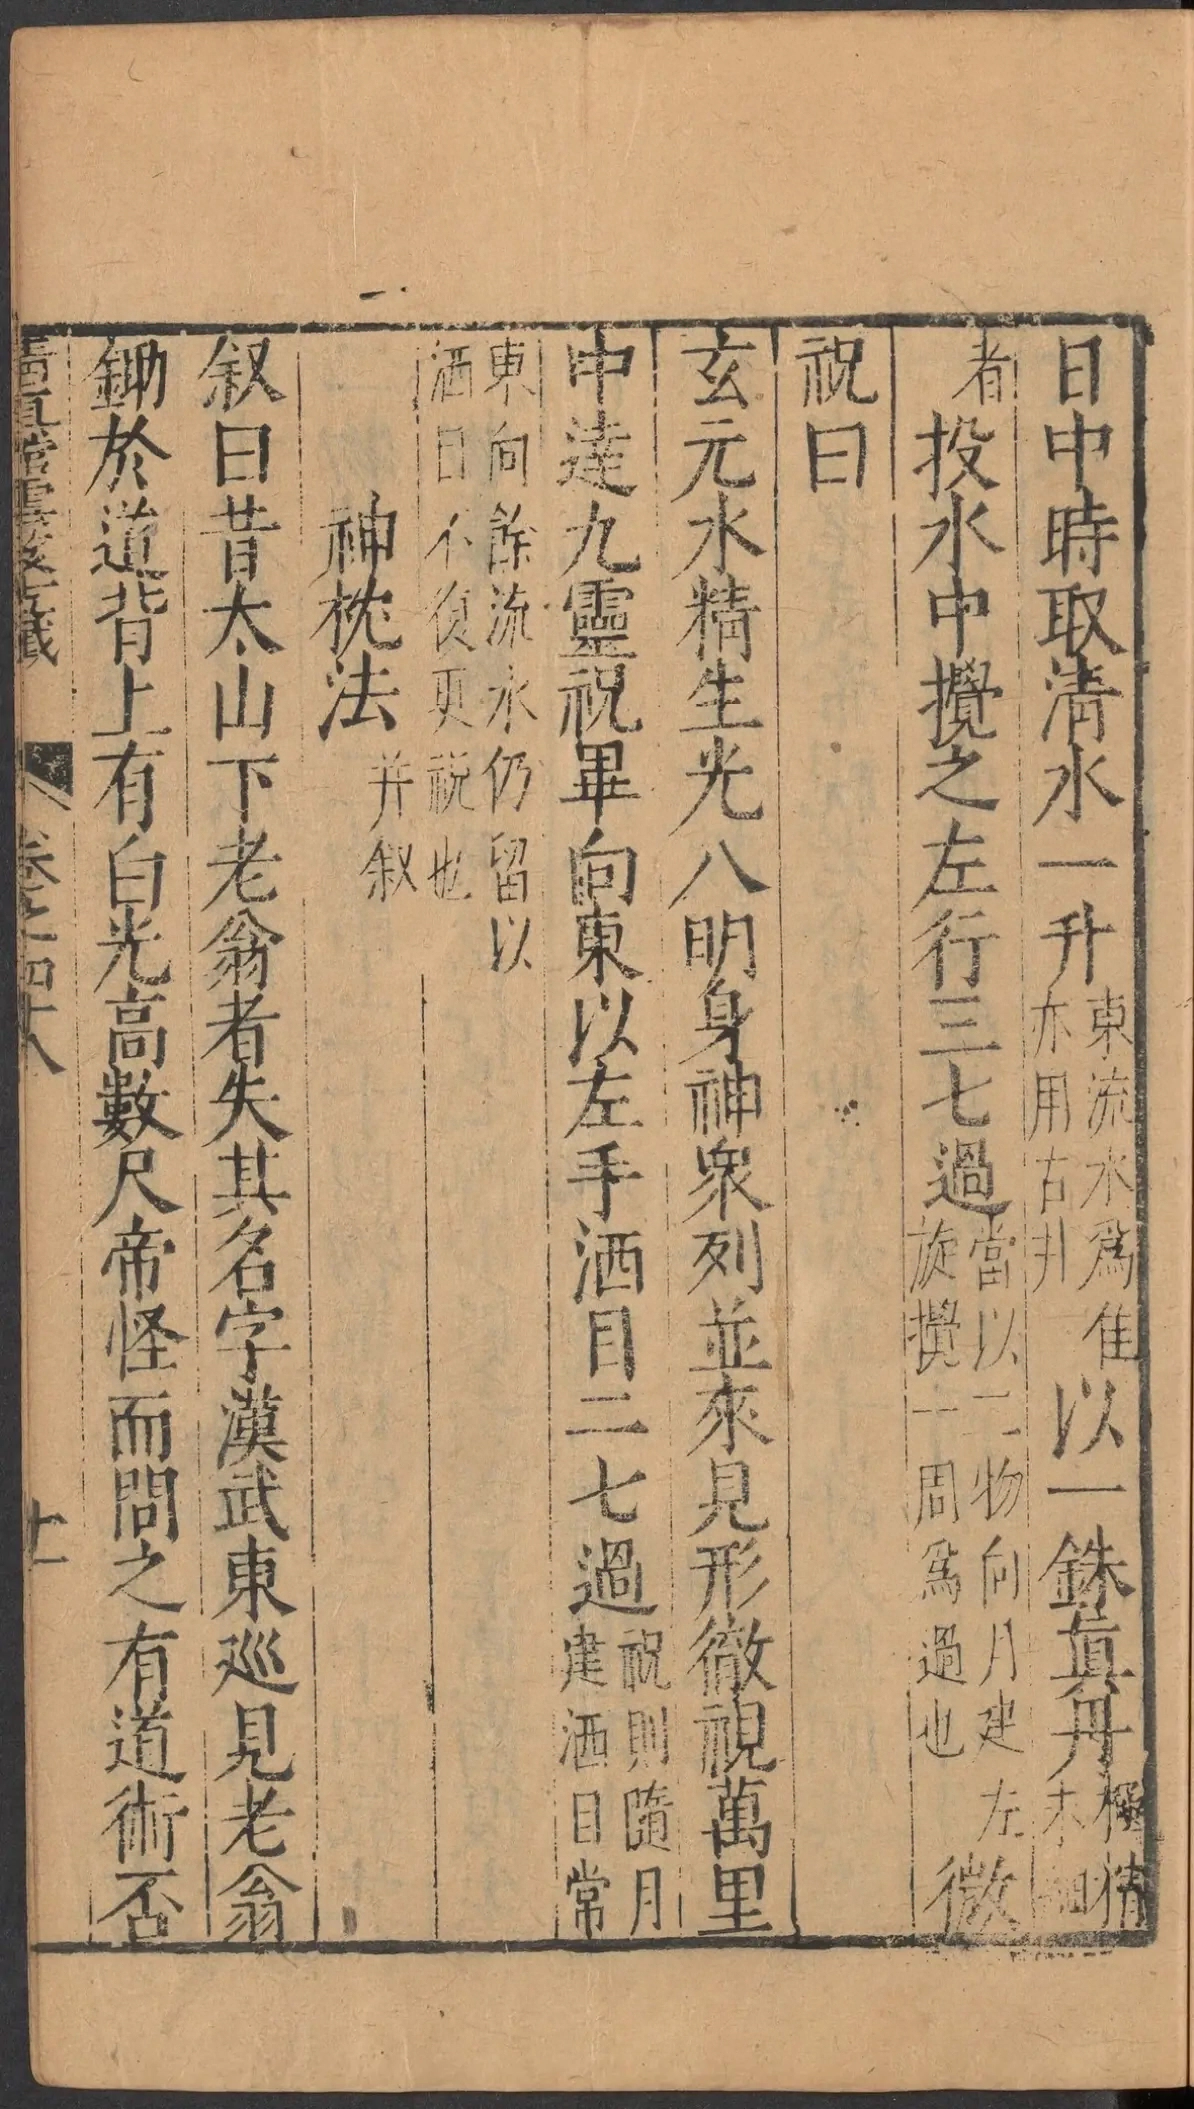 日中時取淸水一升東流水爲佳亦用古井以一銖眞丹極精
者投水中攪之左行三七過當以二物向月建左旋攪一周爲過也微
祝曰
玄元水精生光八明身神衆列並來見形徹視萬里
中達九靈祝畢向東以左手洒目二七過祝則隨月建洒目常
東向餘流水仍留以洒日不復更祝也
神枕法并叙
叙曰昔太山下老翁者失其名字漢武東巡見老翁
鋤於道背上有白光高數尺帝怪而問之有道術否
卷之四十八
十一